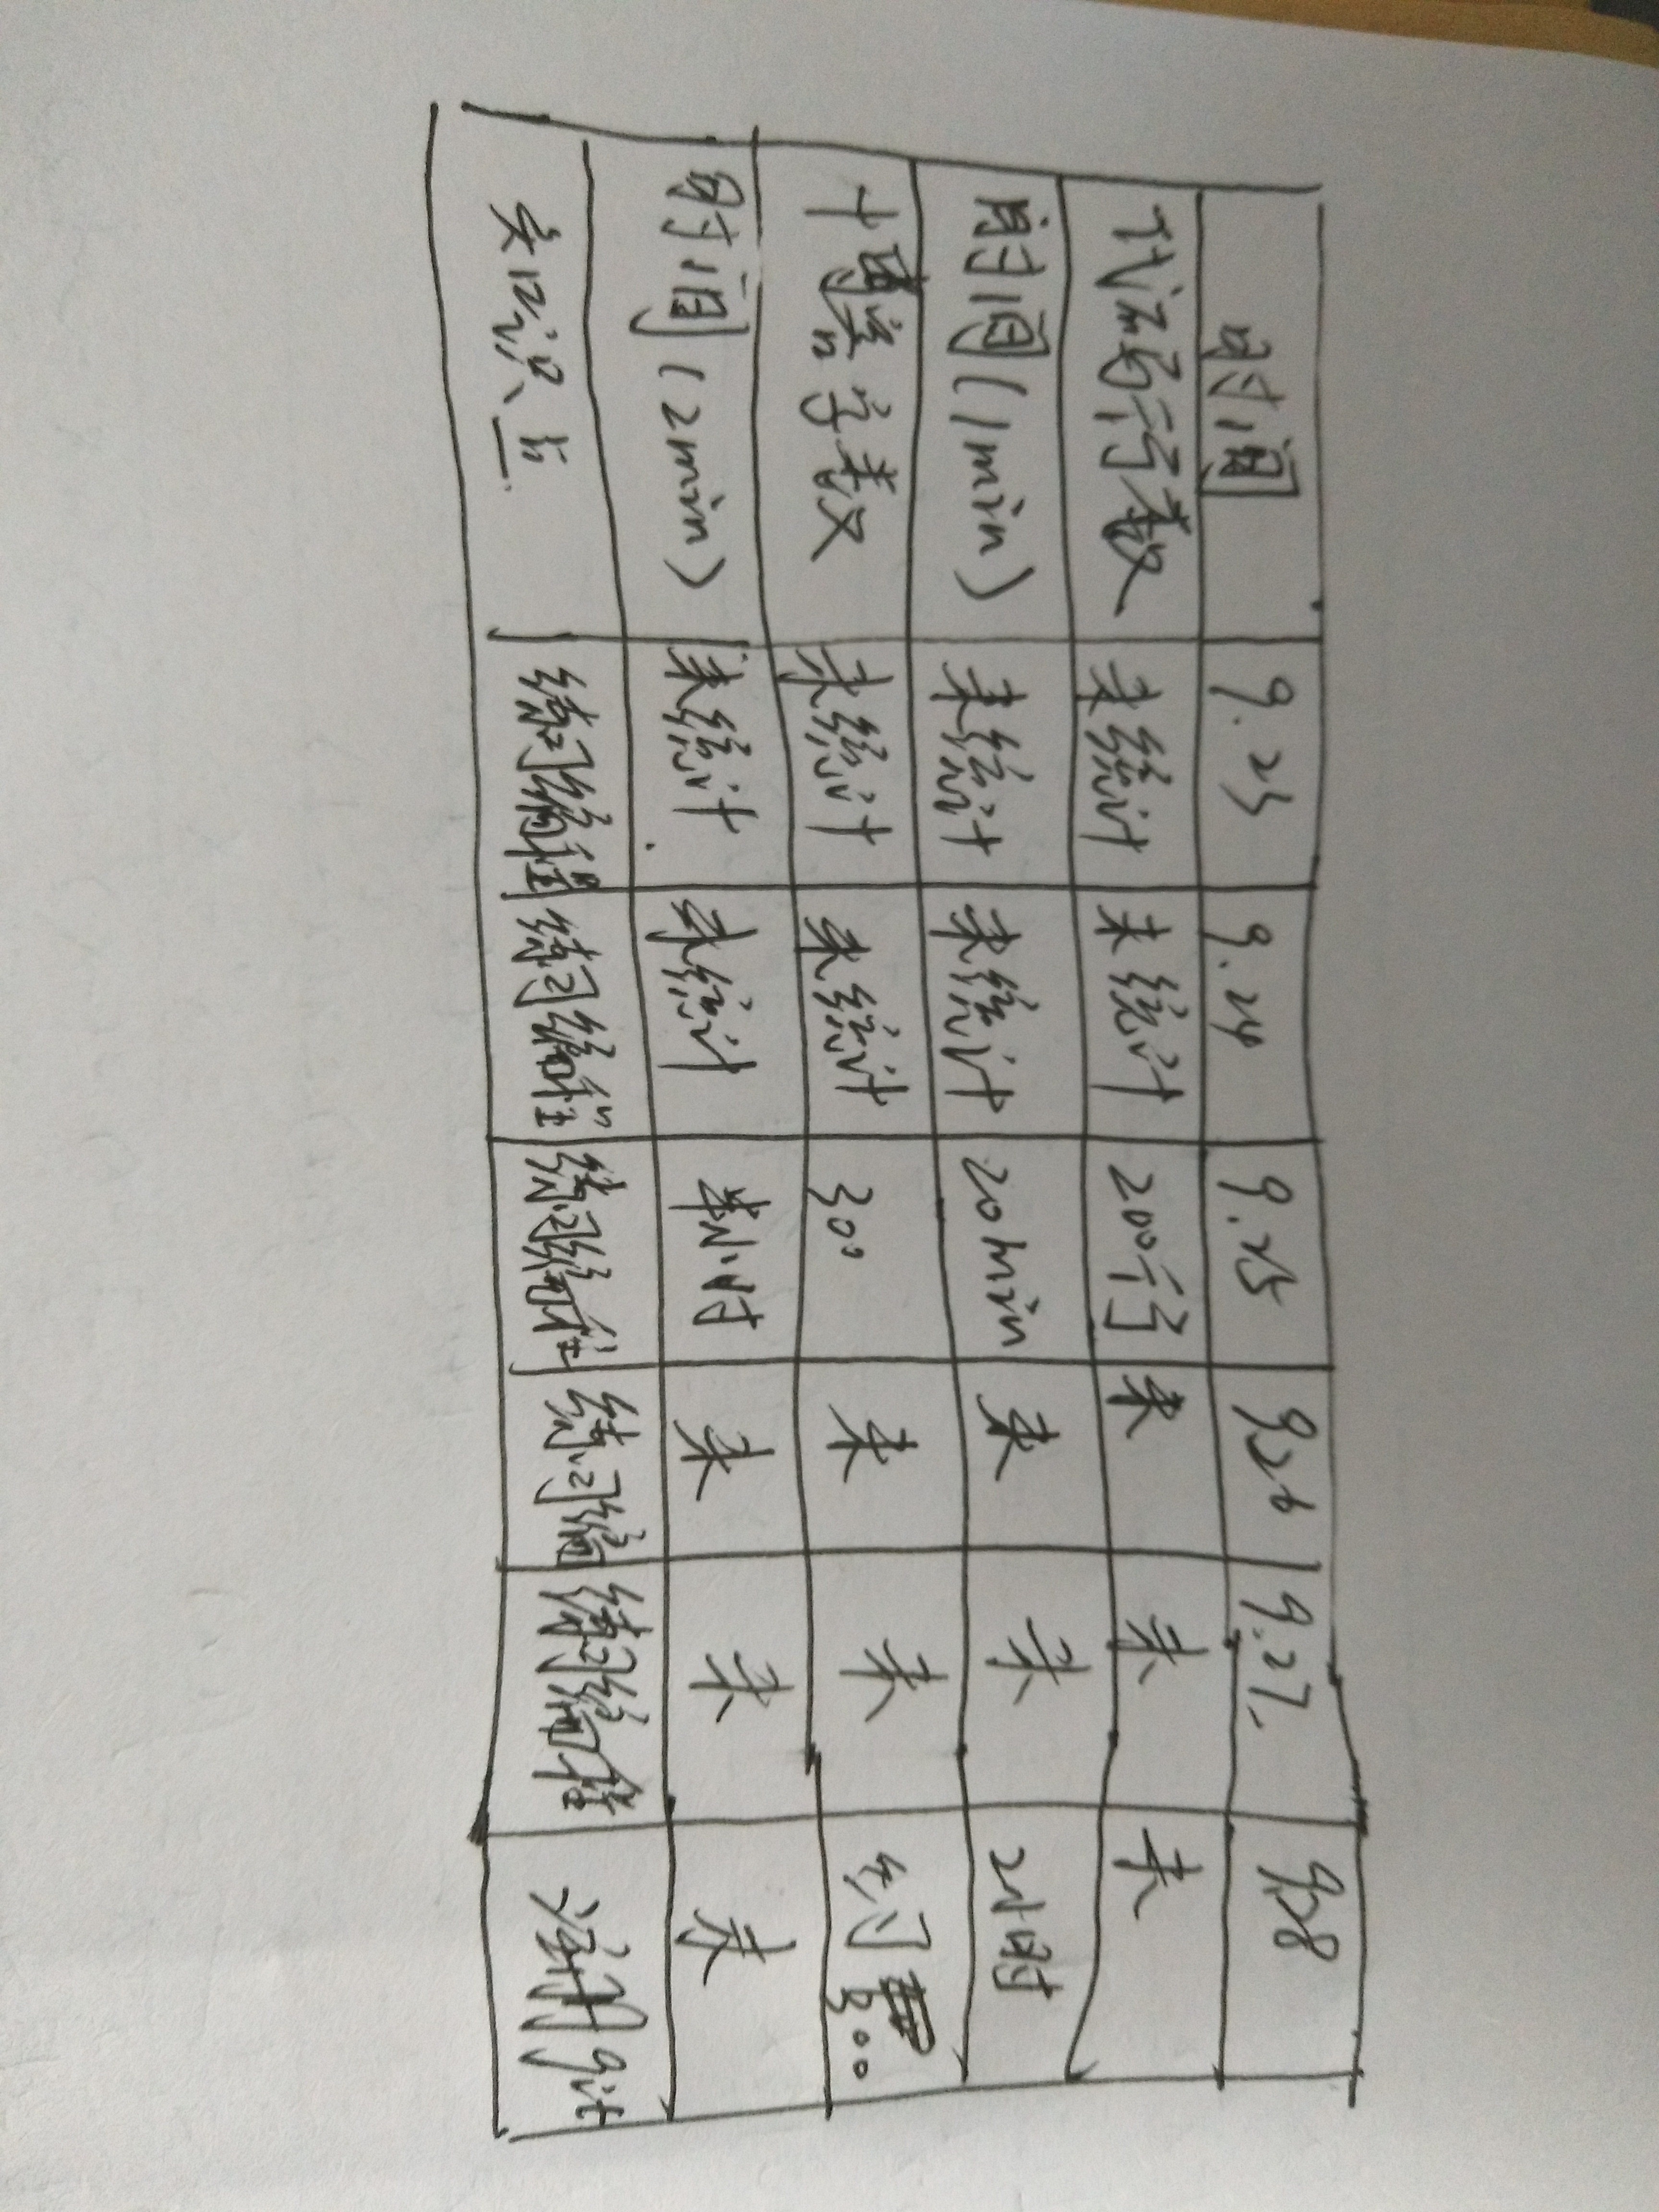 时间 9.25 9.24 9.25 9.26 9.27. 9.28
代码行数 未统计 未统计 200行 未 未 未
时间(1min) 未统计 未统计 20min 未 未 2小时
博客字数 未统计 未统计 300 未 未 约300
时间(2min) 未统计 未统计 半小时 未 未 未
知识点 练习编程 练习编程 练习编程 练习编 练习编程 注册git